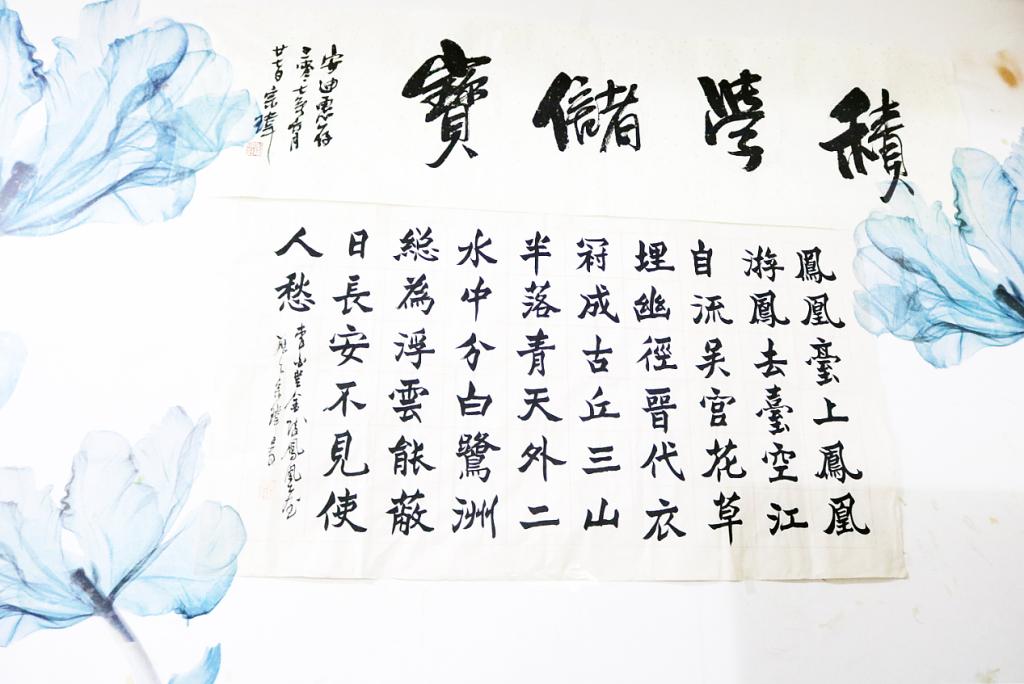 積學儲寶
安迪惠存
宗瑋
鳳凰臺上鳳凰
游鳳去臺空江
自流吴宮花草
埋幽徑晉代衣
冠成古丘三山
半落青天外二
水中分白鷺洲
総為浮雲能蔽
日長安不見使
人愁
李白登金陵鳳凰臺